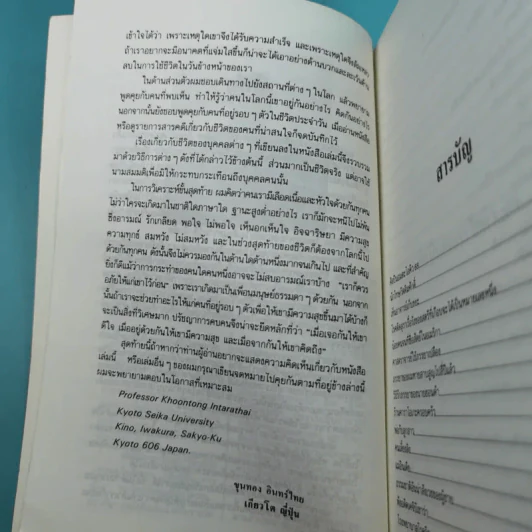 เข้าใจได้ว่า เพราะเหตุใดเขาจึงได้รับความสำเร็จ และเพราะเหตุใดจึงล้มเหลว
ถ้าเราอยากจะมีอนาคตที่แจ่มใสขึ้นก็น่าจะได้เอาอย่างด้านบวกและละเว้นด้าน
ลบในการใช้ชีวิตในวันข้างหน้าของเรา
ในด้านส่วนตัวผมชอบเดินทางไปยังสถานที่ต่าง ๆ ในโลก แล้วพยายาม
พูดคุยกับคนที่พบเห็น ทำให้รู้ว่าคนในโลกนี้เขาอยู่กันอย่างไร คิดกันอย่างไร
นอกจากนั้นยังชอบพูดคุยกับคนที่อยู่รอบ ๆ ตัวในชีวิตประจำวัน เมื่ออ่านหนังสือ
หรือดูรายการสารคดีเกี่ยวกับชีวิตของคนที่น่าสนใจก็จดบันทึกไว้
เรื่องเกี่ยวกับชีวิตของบุคคลต่าง ๆ ที่เขียนลงในหนังสือเล่มนี้จึงรวบรวม
มาด้วยวิธีการต่าง ๆ ดังที่ได้กล่าวไว้ข้างต้นนี้ ส่วนมากเป็นชีวิตจริง แต่อาจใช้
นามสมมติเพื่อมิให้กระทบกระเทือนถึงบุคคลคนนั้น
ในการวิเคราะห์ขั้นสุดท้าย ผมคิดว่าคนเรามีเลือดเนื้อและหัวใจด้วยกันทุกคน
ไม่ว่าใครจะเกิดมาในชาติใดภาษาใด ฐานะสูงต่ำอย่างไร เราก็มักจะหนีไปไม่พ้น
ซึ่งอารมณ์ รักเกลียด พอใจ ไม่พอใจ เห็นอกเห็นใจ อิจฉาริษยา มีความสุข
ความทุกข์ สมหวัง ไม่สมหวัง และในช่วงสุดท้ายของชีวิตก็ต้องจากโลกนี้ไป
ด้วยกันทุกคน ดังนั้นจึงไม่ควรมองกันในด้านใดด้านหนึ่งมากจนเกินไป และที่สำคัญ
ยิ่งก็คือแม้ว่าการกระทำของคนใดคนหนึ่งอาจจะไม่สบอารมณ์เราบ้าง "เราก็ควร
อภัยให้แก่เขาไว้ก่อน" เพราะเราเกิดมาเป็นเพื่อนมนุษย์ธรรมดา ๆ ด้วยกัน นอกจาก
นั้นถ้าเราจะช่วยทำอะไรให้แก่คนที่อยู่รอบ ๆ ตัวเพื่อให้เขามีความสุขขึ้นมาได้บ้างก็
จะเป็นสิ่งที่วิเศษมาก ปรัชญาการคบคนจึงน่าจะยึดหลักที่ว่า "เมื่อเจอกันให้เขา
ดีใจ เมื่ออยู่ด้วยกันให้เขามีความสุข และเมื่อจากกันให้เขาคิดถึง"
สุดท้ายนี้ถ้าหากว่าท่านผู้อ่านอยากจะแสดงความคิดเห็นเกี่ยวกับหนังสือ
เล่มนี้ หรือเล่มอื่น ๆ ของผมกรุณาเขียนจดหมายไปคุยกันตามที่อยู่ข้างล่างนี้
ผมจะพยายามตอบในโอกาสที่เหมาะสม
Professor Khoontong Intarathai
Kyoto Seika University
Kino, Iwakura, Sakyo-Ku
Kyoto 606 Japan.
ขุนทอง อินทร์ไทย
เกียวโต ญี่ปุ่น
สารบัญ